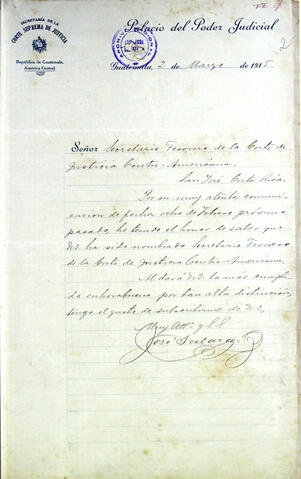 SECRETARÍA DE LA
CORTE SUPREMA DE JUSTICIA
República de Guatemala,
América Central.
Palacio del Poder Judicial
2
Guatemala, 2 de Marzo de 1915
SEÑOR Secretario Tesorero de la Corte de
Justicia Centro-Americana.
San José, Costa Rica.
Por su muy atenta comuni-
cacion de fecha ocho de Febrero próximo
pasado, he tenido el honor de saber que
Ud. ha sido nombrado Secretario Tesorero
de la Corte de Justicia Centro-Americana.
Al dar á Ud. la más cumpli-
da enhorabuena por tan alta distinción,
tengo el gusto de subscribirme de Ud.
Muy Atto. y S S
José Salazar